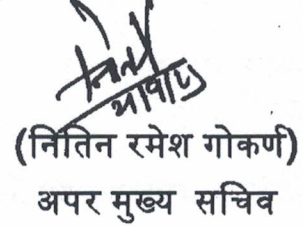 (नितिन रमेश गोकर्ण)
अपर मुख्य सचिव